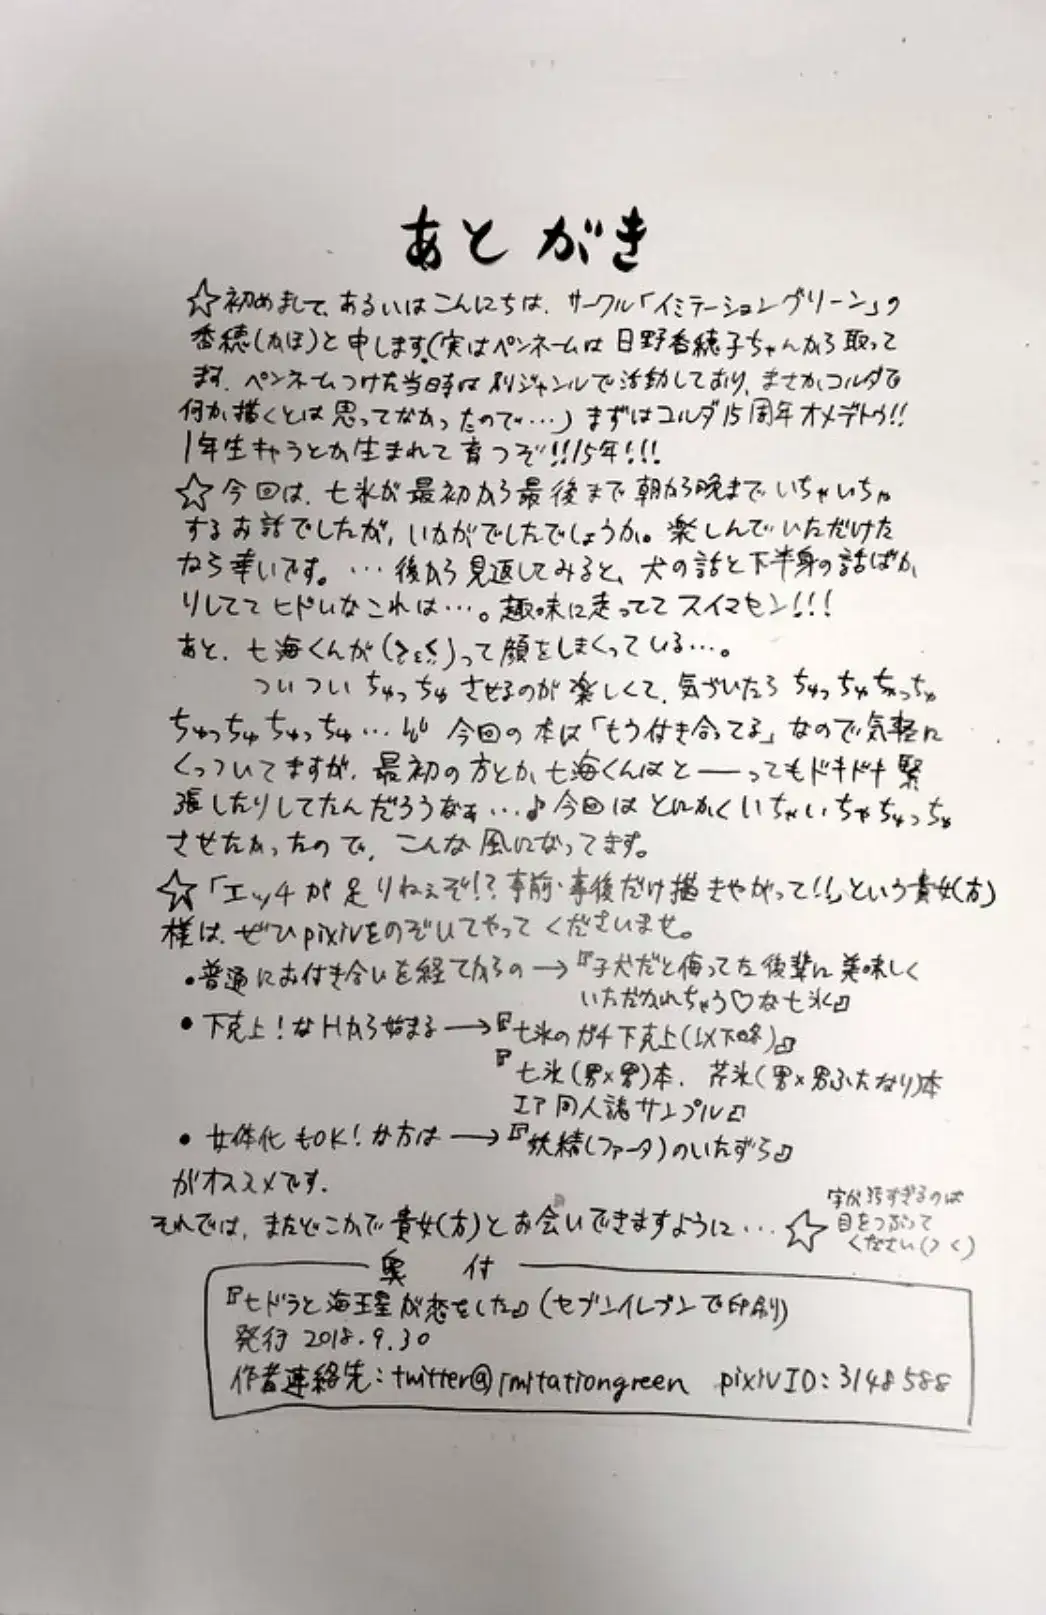 あとがき
☆初めまして、あるいはこんにちは。サークル「イミテーショングリーン」の
香穂(かほ)と申します。(実はペンネームは日野香穂子ちゃんから取って
ます。ペンネームつけた当時は別ジャンルで活動しており、まさかコルダで
何か描くとは思ってなかったので…)まずはコルダ15周年オメデトウ!!
1年生キャラとか生まれて育つぞ!!15年!!!
☆今回は、七氷が最初から最後まで朝から晩までいちゃいちゃ
するお話でしたが、いかがでしたでしょうか。楽しんでいただけた
なら幸いです。…後から見返してみると、犬の話と下半身の話ばか
りしててヒドいなこれは…。趣味に走っててスイマセン!!!
あと、七海くんが()って顔をしまくっている…。
ついついちゅっちゅさせるのが楽しくて、気づいたらちゅっちゅちゅっちゅ
ちゅっちゅちゅっちゅ… 今回の本は「もう付き合ってる」なので気軽に
くっついてますが、最初の方とか七海くんはと――ってもドキドキ緊
張したりしてたんだろうなぁ…♪今回はとにかくいちゃいちゃちゅっちゅ
させたかったので、こんな風になってます。
☆「エッチが足りねぇぞ!?事前・事後だけ描きやがって!!」という貴女(方)
様は、ぜひpixivをのぞいてやってくださいませ。
•普通にお付き合いを経てからの→『子犬だと侮ってた後輩に美味しく
いただかれちゃう♡な七氷』
•下克上!なHから始まる→『七氷のガチ下克上(以下略)』
『七氷(男×男)本、芹氷(男×男ふたなり)本
エア同人誌サンプル』
•女体化もOK!な方は→『妖精(ファータ)のいたずら』
がオススメです。
それでは、またどこかで貴女(方)とお会いできますように…☆
字が汚すぎるのは
目をつぶって
ください(つく)
奥付
『七ドラと海王星が恋をした』(セブンイレブンで印刷)
発行 2018.9.30
作者連絡先:twitter@imitationgreen pixivID:3148588